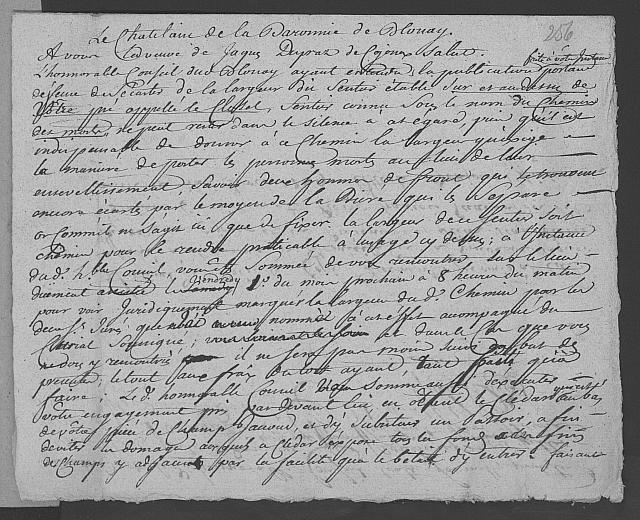 256
Le Chatelain de la Baronnie de Blonay.
A vous la veuve de Jaques Dupraz de Cojonex Salut.
L'honnorable Conseil dud. Blonay ayant entendu la publication portant faite à vôtre Instance
deffense de s'écarter de la largeur du Sentier établi Sur et au dessus de
Vôtre pré appellé le Clusel, Sentier connu Sous le nom du Chemin
des morts, ne peut rester dans le Silence à cet egard, puis qu'il est
indispensable de donner à ce Chemin la largeur qu'exige
la maniere de porter les personnes mortes au lieu de leur
ensevellissement, Savoir deux hommes de front qui se trouvent
encore écartés par le moyen de la Biere qui les Separe
or comme il ne s'agit ici que de fixer la largeur de ce Sentier soit
chemin pour le rendre praticable à l'usage cy dessus; à l'Instance
du d. hble Conseil, vous êtes Sommée de vous rencontrer, sur le lieu
dûement Vendredy 1er du mois prochain à 8 heures du matin
pour voir Juridiquement marquer la largeur du d. Chemin par les
deux Srs Jurés, que nommé à cet effet accompagné du
Curial Soussigné; et dans le cas que vous
ne dussiez y rencontrer il ne sera pas moins Suivi au but de
présente, le tout aux frais du tort ayant, tant faits qu'à
faire; Le d. honnorable Conseil vous Somme aussi d'executer
vôtre engagement pris par devant lui en otant le Clédar au bas
de vôtre piece de Champ et d'y Substituer un Passoir, afin
d'eviter le domage auquel ce Cledar expose tous les fonds
des Champs y adjacents par la facilité que le betail d'y entrer. faisant